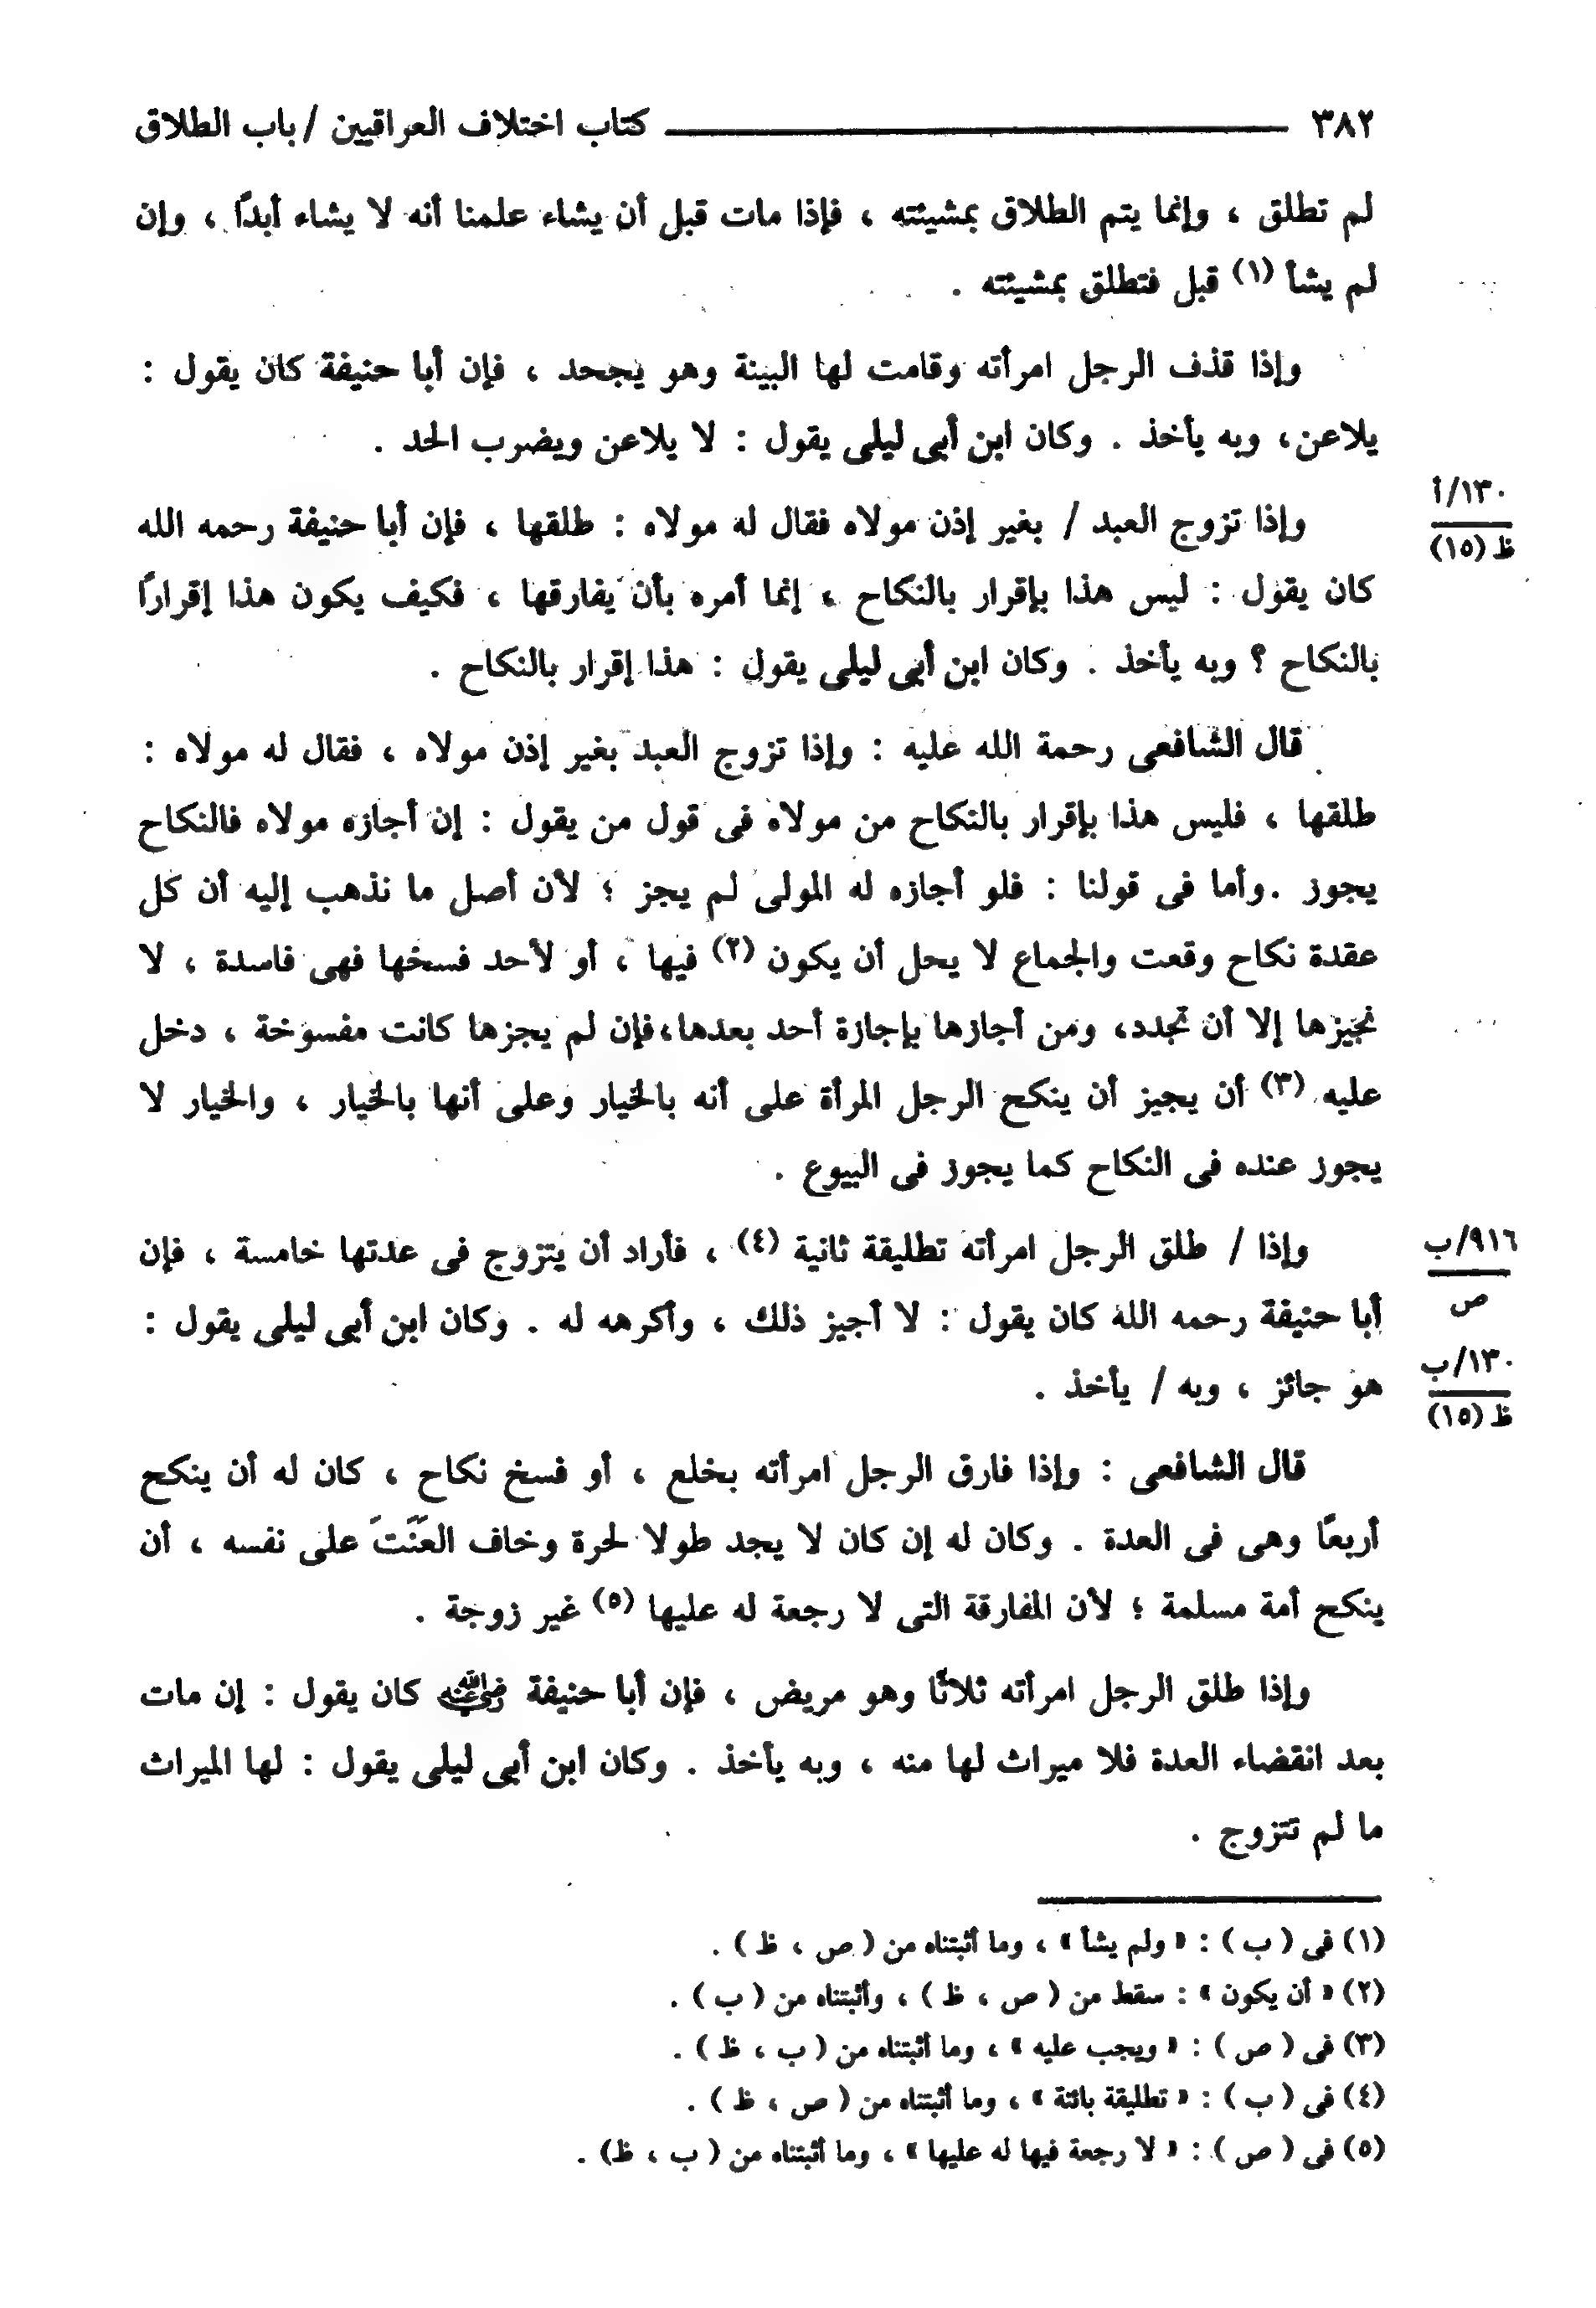 ٣٨٢ كتاب اختلاف العراقيين / باب الطلاق
لم تطلق ، وإنما يتم الطلاق بمشيئته ، فإذا مات قبل أن يشاء علمنا أنه لا يشاء أبدًا ، وإن
لم يشأ (١) قبل فتطلق بمشيئته .
وإذا قذف الرجل امرأته وقامت لها البينة وهو يجحد ، فإن أبا حنيفة كان يقول :
يلاعن، وبه يأخذ . وكان ابن أبى ليلى يقول : لا يلاعن ويضرب الحد .
١٣٠/أ
ظ (١٥)
وإذا تزوج العبد / بغير إذن مولاه فقال له مولاه : طلقها ، فإن أبا حنيفة رحمه الله
كان يقول : ليس هذا بإقرار بالنكاح ، إنما أمره بأن يفارقها ، فكيف يكون هذا إقرارًا
بالنكاح ؟ وبه يأخذ . وكان ابن أبى ليلى يقول : هذا إقرار بالنكاح .
قال الشافعى رحمة الله عليه : وإذا تزوج العبد بغير إذن مولاه ، فقال له مولاه :
طلقها ، فليس هذا بإقرار بالنكاح من مولاه فى قول من يقول : إن أجازه مولاه فالنكاح
يجوز .وأما فى قولنا : فلو أجازه له المولى لم يجز ؛ لأن أصل ما نذهب إليه أن كل
عقدة نكاح وقعت والجماع لا يحل أن يكون (٢) فيها ، أو لأحد فسخها فهى فاسدة ، لا
نجيزها إلا أن تجدد، ومن أجازها بإجازة أحد بعدها،فإن لم يجزها كانت مفسوخة ، دخل
عليه (٣) أن يجيز أن ينكح الرجل المرأة على أنه بالخيار وعلى أنها بالخيار ، والخيار لا
يجوز عنده فى النكاح كما يجوز فى البيوع .
٩١٦/ب
ص
وإذا / طلق الرجل امرأته تطليقة ثانية (٤) ، فأراد أن يتزوج فى عدتها خامسة ، فإن
أبا حنيفة رحمه الله كان يقول : لا أجيز ذلك ، وأكرهه له . وكان ابن أبى ليلى يقول :
١٣٠/ب
ظ (١٥)
هو جائز ، وبه / يأخذ .
قال الشافعى : وإذا فارق الرجل امرأته بخلع ، أو فسخ نكاح ، كان له أن ينكح
أربعًا وهى فى العدة . وكان له إن كان لا يجد طولا لحرة وخاف العَنَتَ على نفسه ، أن
ينكح أمة مسلمة ؛ لأن المفارقة التى لا رجعة له عليها (٥) غير زوجة .
وإذا طلق الرجل امرأته ثلاثًا وهو مريض ، فإن أبا حنيفة رضي الله عنه كان يقول : إن مات
بعد انقضاء العدة فلا ميراث لها منه ، وبه يأخذ . وكان ابن أبى ليلى يقول : لها الميراث
ما لم تتزوج .
(١) فى ( ب ) : « ولم يشأ » ، وما أثبتناه من ( ص ، ظ ) .
(٢) « أن يكون » : سقط من ( ص ، ظ ) ، وأثبتناه من ( ب ) .
(٣) فى ( ص ) : « ويجب عليه » ، وما أثبتناه من ( ب ، ظ ) .
(٤) فى ( ب ) : « تطليقة بائنة » ، وما أثبتناه من ( ص ، ظ ) .
(٥) فى ( ص ) : « لا رجعة فيها له عليها » ، وما أثبتناه من ( ب ، ظ) .